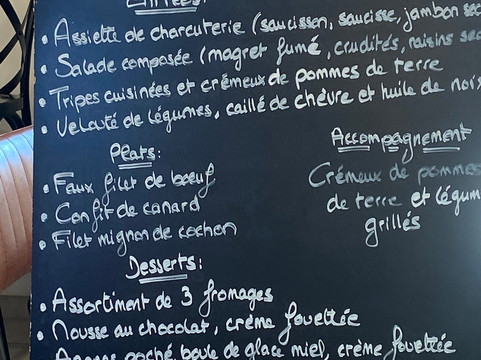 Entrées:
• Assiette de charcuterie (saucisson, saucisse, jambon sec
• Salade composée (magret fumé, crudités, raisins sec
• Tripes cuisinées et crémeux de pommes de terre
• Velouté de légumes, caillé de chèvre et huile de nois
Plats:
• Faux filet de bœuf
• Confit de canard
• Filet mignon de cochon
Accompagnement
Crémeux de pommes
de terre et légum
grillés
Desserts:
• Assortiment de 3 fromages
• Mousse au chocolat, crème fouettée
poché, boule de glace miel, crème fouettée